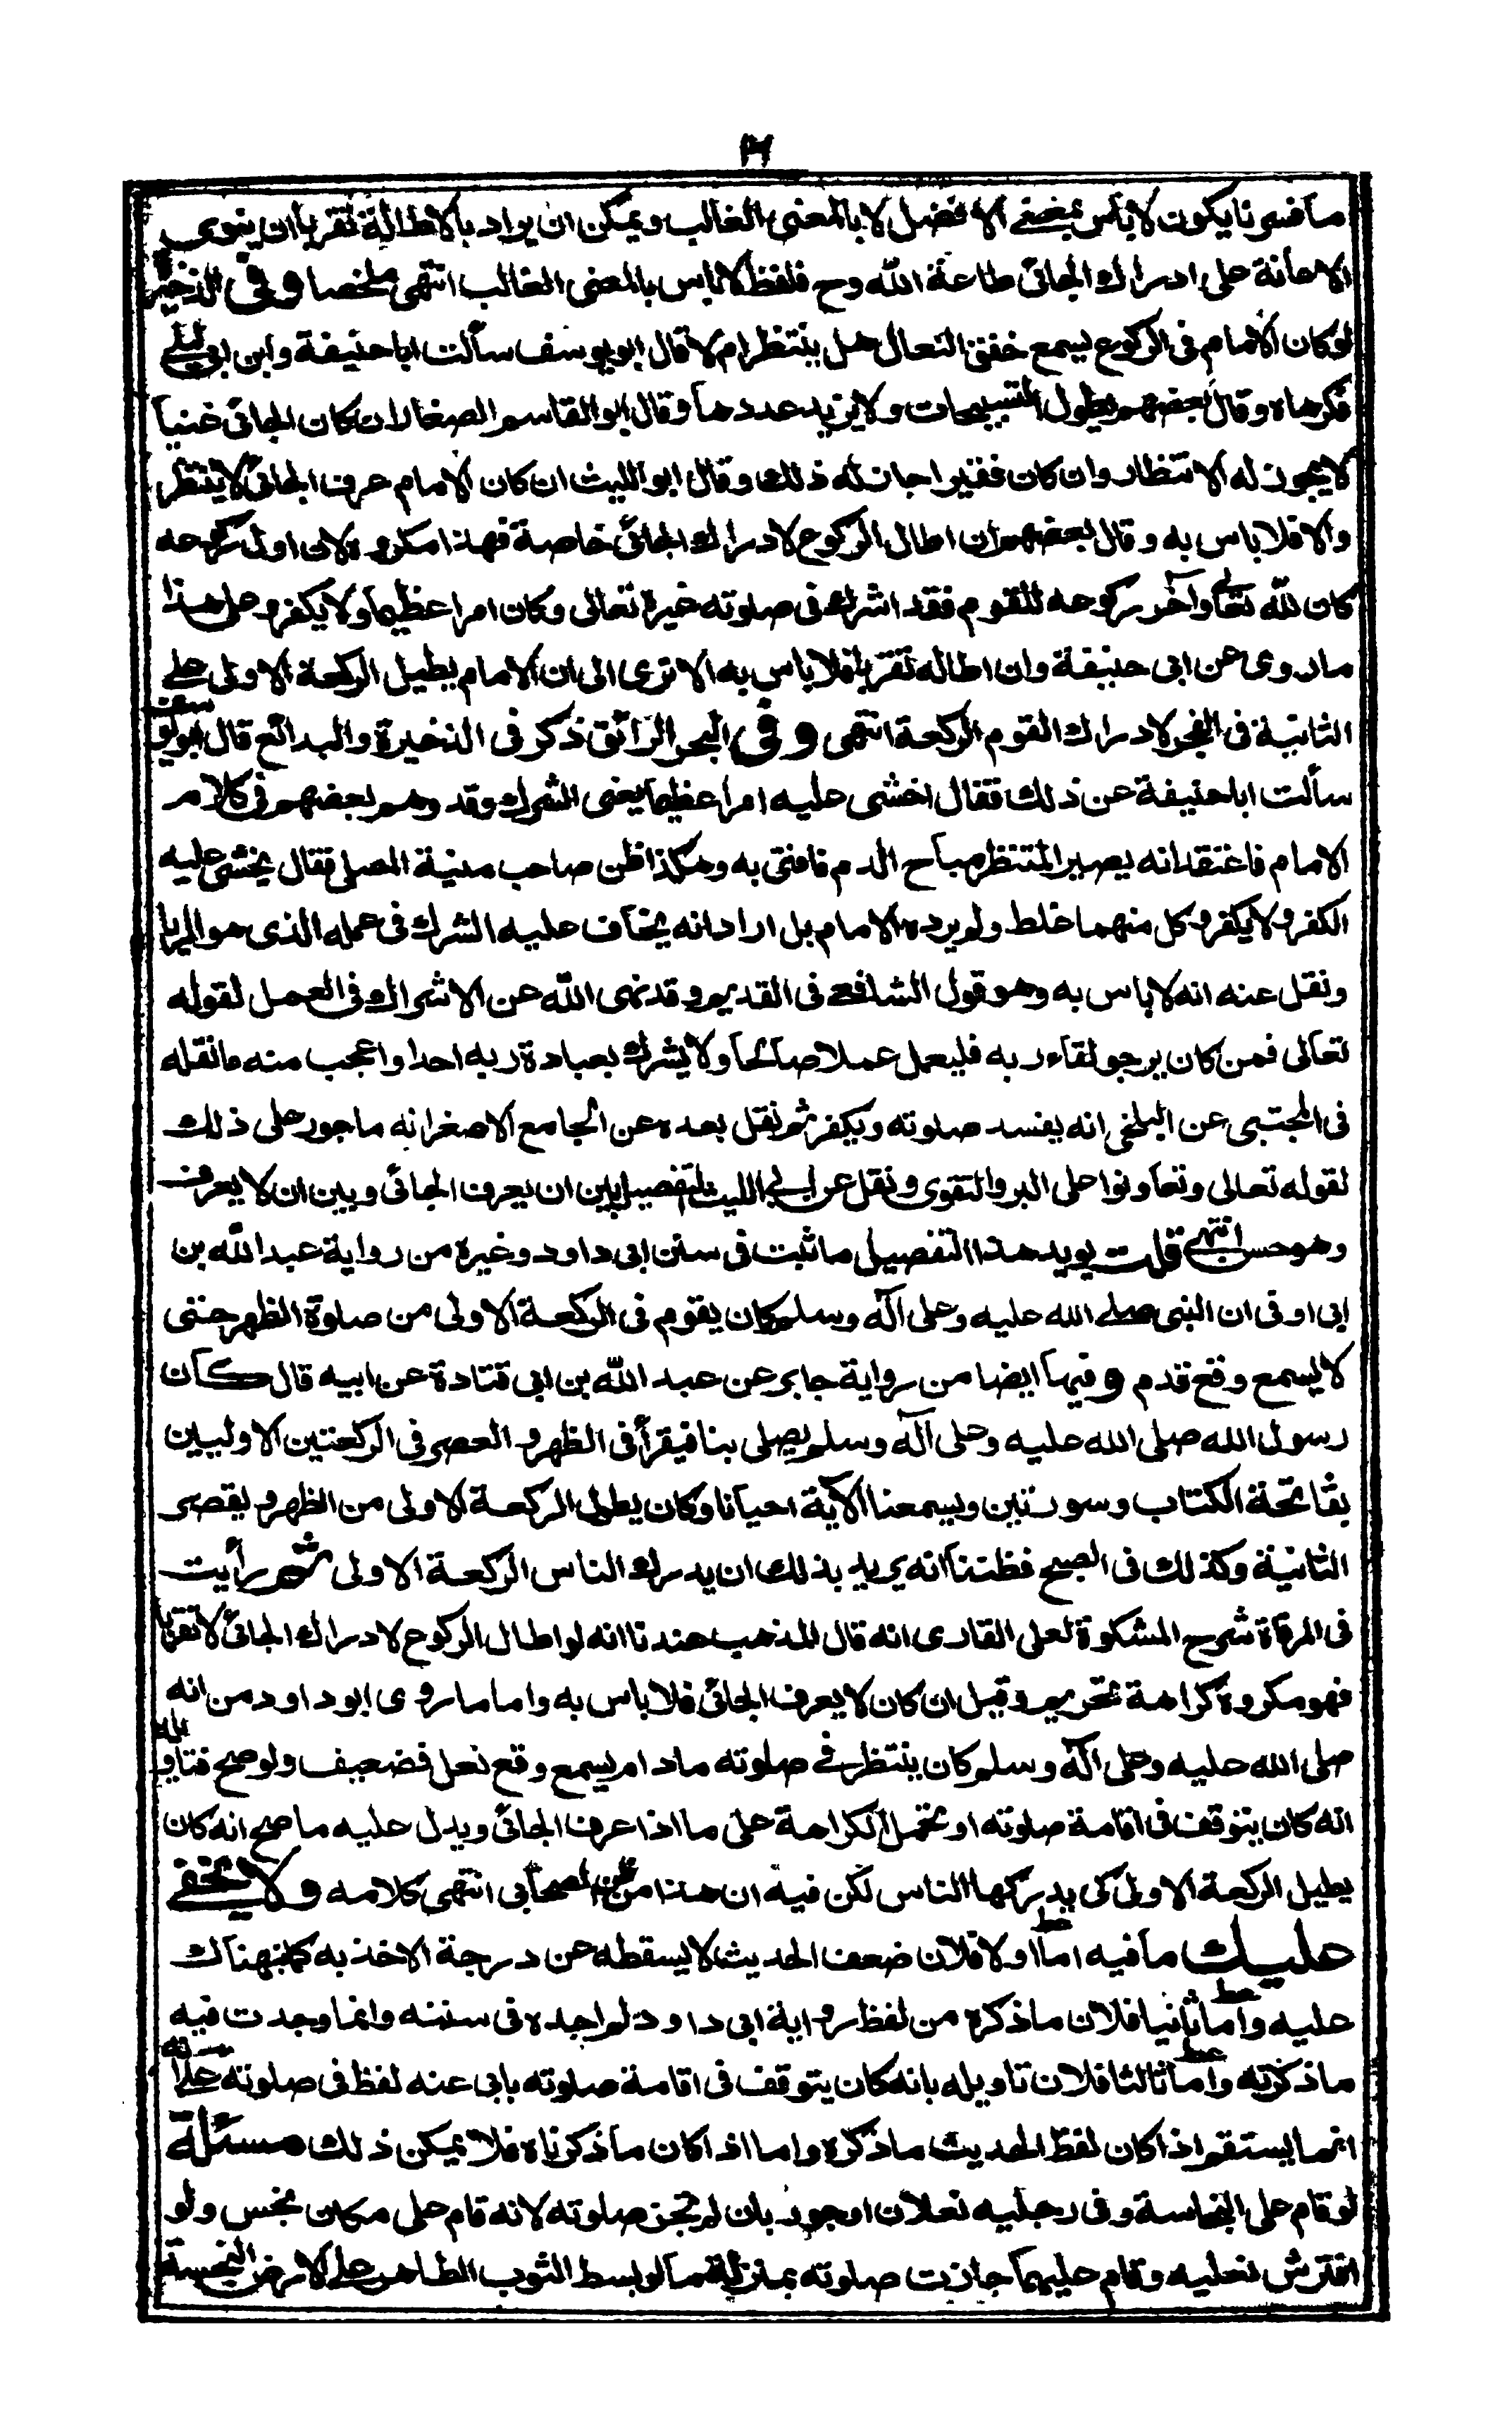 ٢١
ما فسرنا يكون لا باس بمعنى الافضل لا بالمعنى الغالب ويمكن ان يراد بالاطالة تقربا ان ينوى
الاعانة على ادراك الجائى طاعة الله وح فلفظ لا باس بالمعنى الغالب انتهى ملخصا وفى الذخيرة
لو كان الامام فى الركوع يسمع خفق النعال هل ينتظر ام لا قال ابو يوسف سألت ابا حنيفة وابن ابى ليلى
فكرهاه وقال بعضهم يطول التسبيحات ولا يزيد عددها وقال ابو القاسم الصفار ان كان الجائى غنيا
لا يجوز له الانتظار وان كان فقيرا جاز له ذلك وقال ابو الليث ان كان الامام عرف الجائى لا ينتظر
والا فلا باس به وقال بعضهم ان اطال الركوع لادراك الجائى خاصة فهذا مكروه لان اول ركوعه
كان لله تعالى وآخر ركوعه للقوم فقد اشرك فى صلوته غيره تعالى وكان امرا عظيما ولا يكفر وعلى هذا
ما روى عن ابى حنيفة وان اطاله تقربا فلا باس به الا ترى الى ان الامام يطيل الركعة الاولى على
الثانية فى الفجر لادراك القوم الركعة انتهى وفى البحر الرائق ذكر فى الذخيرة والبدائع قال ابو يوسف
سألت ابا حنيفة عن ذلك فقال اخشى عليه امرا عظيما يعنى الشرك وقد وهم بعضهم فى كلام
الامام فاعتقد انه يصير المنتظر مباح الدم فافتى به وهكذا ظن صاحب منية المصلى فقال يخشى عليه
الكفر ولا يكفر وكل منهما غلط ولم يرده الامام بل اراد انه يخاف عليه الشرك فى عمله الذى هو الريا
ونقل عنه انه لا باس به وهو قول الشافعى فى القديم وقد نهى الله عن الاشراك فى العمل لقوله
تعالى فمن كان يرجو لقاء ربه فليعمل عملا صالحا ولا يشرك بعبادة ربه احدا واعجب منه ما نقله
فى المجتبى عن البلخى انه يفسد صلوته ويكفر ثم نقل بعده عن الجامع الاصغر انه ماجور على ذلك
لقوله تعالى وتعاونوا على البر والتقوى ونقل عن ابى الليث التفصيل بين ان يعرف الجائى وبين ان لا يعرف
وهو حسن انتهى قلت يويد هذا التفصيل ما ثبت فى سنن ابى داود وغيره من رواية عبد الله بن
ابى اوفى ان النبى صلى الله عليه وعلى آله وسلم كان يقوم فى الركعة الاولى من صلوة الظهر حتى
لا يسمع وقع قدم وفيها ايضا من رواية جابر عن عبد الله بن ابى قتادة عن ابيه قال كان
رسول الله صلى الله عليه وعلى آله وسلم يصلى بنا فيقرأ فى الظهر والعصر فى الركعتين الاوليين
بفاتحة الكتاب وسورتين ويسمعنا الآية احيانا وكان يطول الركعة الاولى من الظهر ويقصر
الثانية وكذلك فى الصبح فظننا انه يريد بذلك ان يدرك الناس الركعة الاولى ثم رأيت
فى المرقاة شرح المشكوة لعلى القارى انه قال المذهب عندنا انه لو اطال الركوع لادراك الجائى لا تقربا
فهو مكروه كراهة تحريم وقيل ان كان لا يعرف الجائى فلا باس به واما ما روى ابو داود من انه
صلى الله عليه وعلى آله وسلم كان ينتظر فى صلوته ما دام يسمع وقع نعل فضعيف ولو صح فتاويله
انه كان يتوقف فى اقامة صلوته او تحمل الكراهة على ما اذا عرف الجائى ويدل عليه ما صح انه كان
يطيل الركعة الاولى كى يدركها الناس لكن فيه ان هذا من ظن الصحابى انتهى كلامه ولا يخفى
عليك ما فيه اما اولا فلان ضعف الحديث لا يسقطه عن درجة الاخذ به كما نبهناك
عليه واما ثانيا فلان ما ذكره من لفظ رواية ابى داود لم اجده فى سننه وانما وجدت فيه
ما ذكرته واما ثالثا فلان تاويله بانه كان يتوقف فى اقامة صلوته يابى عنه لفظ فى صلوته على انه
انما يستقم اذا كان لفظ الحديث ما ذكره واما اذا كان ما ذكرناه فلا يمكن ذلك مسئلة
لو قام على النجاسة وفى رجليه نعلان او جوربان لم تجز صلوته لانه قام على مكان نجس ولو
افترش نعليه وقام عليهما جازت صلوته بمنزلة ما لو بسط الثوب الطاهر على الارض النجسة